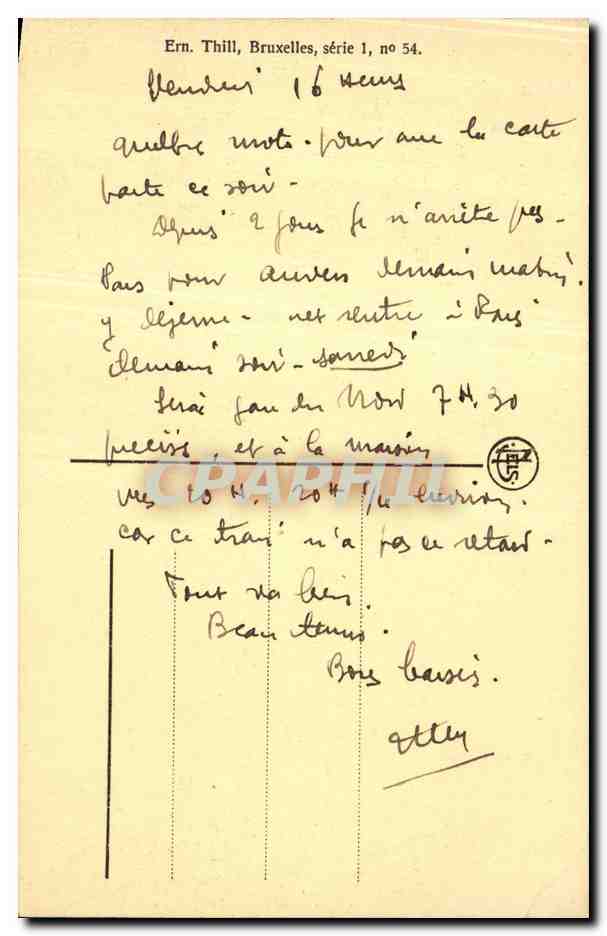 Ern. Thill, Bruxelles, série 1, no 54.
Vendredi 16 heures
quelques mots. pour que la carte
parte ce soir -
Depuis 2 jours je n'arrête pas -
Pars pour Anvers demain matin.
y déjeune - et rentre à Paris
demain soir - samedi
Serai gare du Nord 7 H. 30
précises, et à la maison
NELS
CPAPHIL
vers 20 H. 20 H 1/4 environ.
car ce train n'a pas de retard -
Tout va bien.
Beau temps.
Bons baisers.